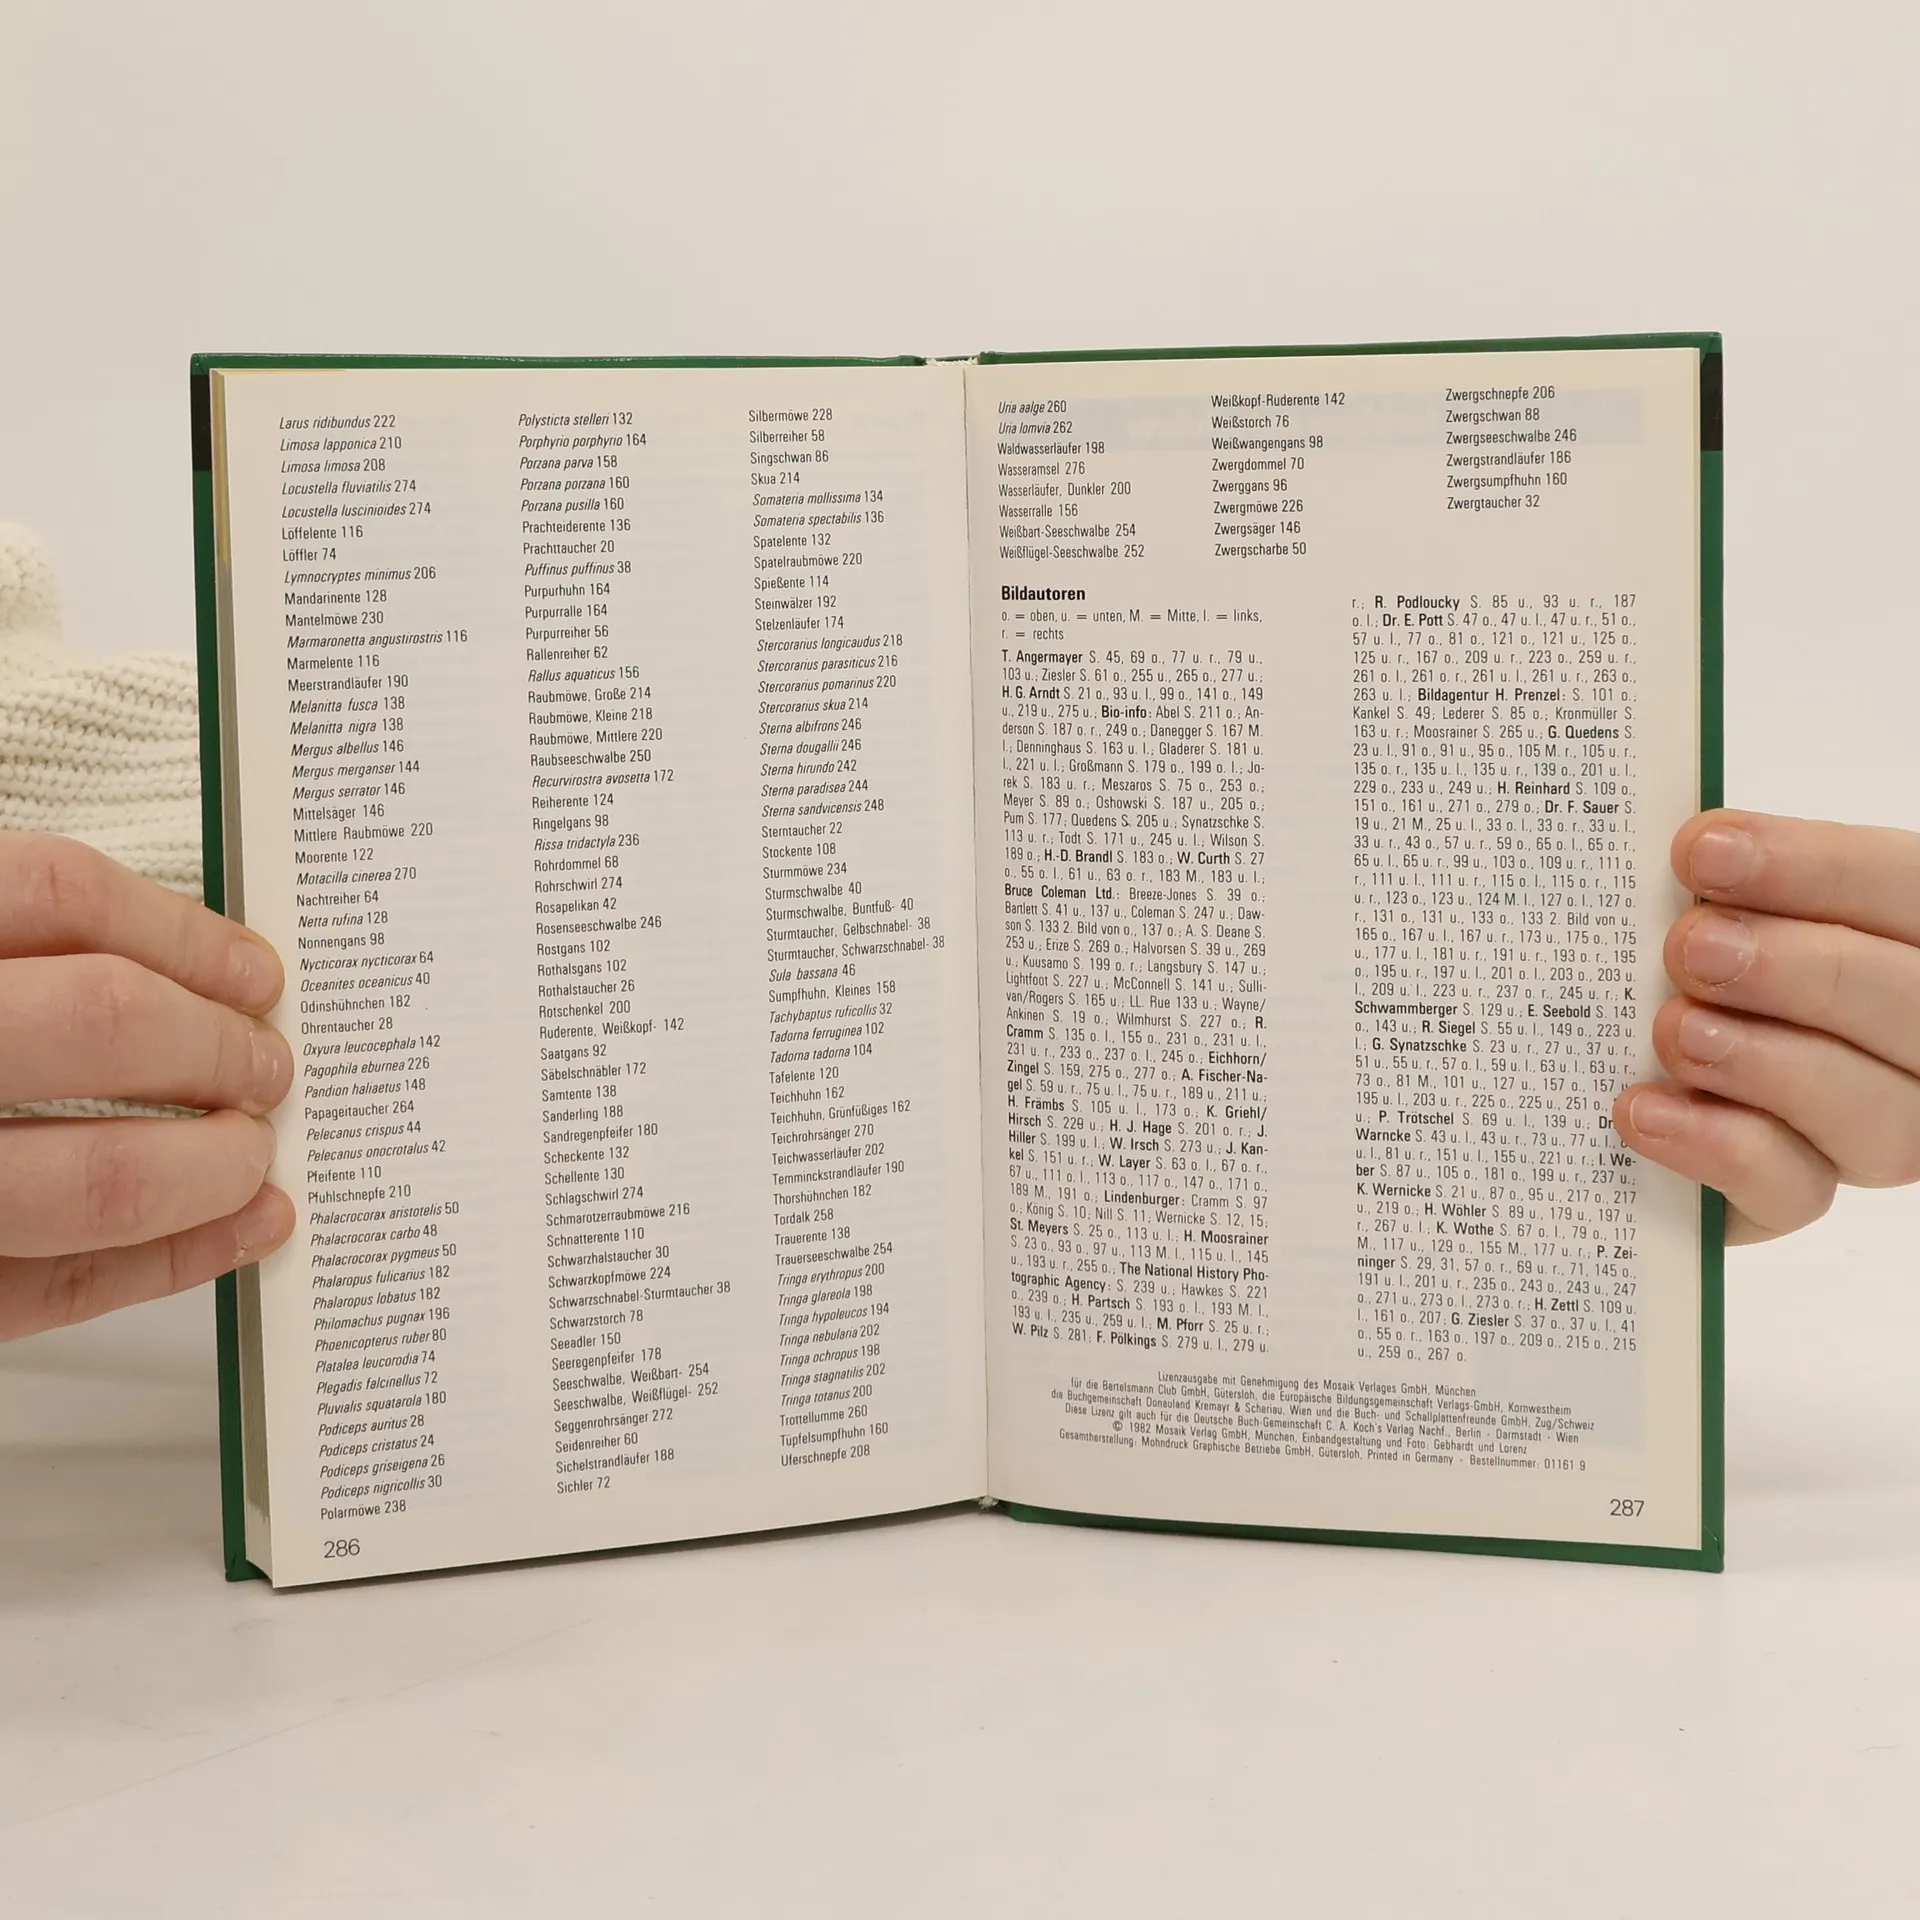 Larus ridibundus 222
Limosa lapponica 210
Limosa limosa 208
Locustella fluviatilis 274
Locustella luscinioides 274
Löffelente 116
Löffler 74
Lymnocryptes minimus 206
Mandarinente 128
Mantelmöwe 230
Marmaronetta angustirostris 116
Marmelente 116
Meerstrandläufer 190
Melanitta fusca 138
Melanitta nigra 138
Mergus albellus 146
Mergus merganser 144
Mergus serrator 146
Mittelsäger 146
Mittlere Raubmöwe 220
Moorente 122
Motacilla cinerea 270
Nachtreiher 64
Netta rufina 128
Nonnengans 98
Nycticorax nycticorax 64
Oceanites oceanicus 40
Odinshühnchen 182
Ohrentaucher 28
Oxyura leucocephala 142
Pagophila eburnea 226
Pandion haliaetus 148
Papageitaucher 264
Pelecanus crispus 44
Pelecanus onocrotalus 42
Pfeifente 110
Pfuhlschnepfe 210
Phalacrocorax aristotelis 50
Phalacrocorax carbo 48
Phalacrocorax pygmeus 50
Phalaropus fulicarius 182
Phalaropus lobatus 182
Philomachus pugnax 196
Phoenicopterus ruber 80
Platalea leucorodia 74
Plegadis falcinellus 72
Pluvialis squatarola 180
Podiceps auritus 28
Podiceps cristatus 24
Podiceps griseigena 26
Podiceps nigricollis 30
Polarmöwe 238
Polysticta stelleri 132
Porphyrio porphyrio 164
Porzana parva 158
Porzana porzana 160
Porzana pusilla 160
Prachteiderente 136
Prachttaucher 20
Puffinus puffinus 38
Purpurhuhn 164
Purpurralle 164
Purpurreiher 56
Rallenreiher 62
Rallus aquaticus 156
Raubmöwe, Große 214
Raubmöwe, Kleine 218
Raubmöwe, Mittlere 220
Raubseeschwalbe 250
Recurvirostra avosetta 172
Reiherente 124
Ringelgans 98
Rissa tridactyla 236
Rohrdommel 68
Rohrschwirl 274
Rosapelikan 42
Rosenseeschwalbe 246
Rostgans 102
Rothalsgans 102
Rothalstaucher 26
Rotschenkel 200
Ruderente, Weißkopf- 142
Saatgans 92
Säbelschnäbler 172
Samtente 138
Sanderling 188
Sandregenpfeifer 180
Scheckente 132
Schellente 130
Schlagschwirl 274
Schmarotzerraubmöwe 216
Schnatterente 110
Schwarzhalstaucher 30
Schwarzkopfmöwe 224
Schwarzschnabel-Sturmtaucher 38
Schwarzstorch 78
Seeadler 150
Seeregenpfeifer 178
Seeschwalbe, Weißbart- 254
Seeschwalbe, Weißflügel- 252
Seggenrohrsänger 272
Seidenreiher 60
Sichelstrandläufer 188
Sichler 72
Silbermöwe 228
Silberreiher 58
Singschwan 86
Skua 214
Somateria mollissima 134
Somateria spectabilis 136
Spatelente 132
Spatelraubmöwe 220
Spießente 114
Steinwälzer 192
Stelzenläufer 174
Stercorarius longicaudus 218
Stercorarius parasiticus 216
Stercorarius pomarinus 220
Stercorarius skua 214
Sterna albifrons 246
Sterna dougallii 246
Sterna hirundo 242
Sterna paradisea 244
Sterna sandvicensis 248
Sterntaucher 22
Stockente 108
Sturmmöwe 234
Sturmschwalbe 40
Sturmschwalbe, Buntfuß- 40
Sturmtaucher, Gelbschnabel- 38
Sturmtaucher, Schwarzschnabel- 38
Sula bassana 46
Sumpfhuhn, Kleines 158
Tachybaptus ruficollis 32
Tadorna ferruginea 102
Tadorna tadorna 104
Tafelente 120
Teichhuhn 162
Teichhuhn, Grünfüßiges 162
Teichrohrsänger 270
Teichwasserläufer 202
Temminckstrandläufer 190
Thorshühnchen 182
Tordalk 258
Trauerente 138
Trauerseeschwalbe 254
Tringa erythropus 200
Tringa glareola 198
Tringa hypoleucos 194
Tringa nebularia 202
Tringa ochropus 198
Tringa stagnatilis 202
Tringa totanus 200
Trottellumme 260
Tüpfelsumpfhuhn 160
Uferschnepfe 208
286
Uria aalge 260
Uria lomvia 262
Waldwasserläufer 198
Wasseramsel 276
Wasserläufer, Dunkler 200
Wasserralle 156
Weißbart-Seeschwalbe 254
Weißflügel-Seeschwalbe 252
Weißkopf-Ruderente 142
Weißstorch 76
Weißwangengans 98
Zwergdommel 70
Zwerggans 96
Zwergmöwe 226
Zwergsäger 146
Zwergscharbe 50
Zwergschnepfe 206
Zwergschwan 88
Zwergseeschwalbe 246
Zwergstrandläufer 186
Zwergsumpfhuhn 160
Zwergtaucher 32
Bildautoren
o. = oben, u. = unten, M. = Mitte, l. = links,
r. = rechts
T. Angermayer S. 45, 69 o., 77 u. r., 79 u.,
103 u.; Ziesler S. 61 o., 255 u., 265 o., 277 u.;
H. G. Arndt S. 21 o., 93 u. l., 99 o., 141 o., 149
u., 219 u., 275 u.; Bio-info: Abel S. 211 o.; An-
derson S. 187 o. r., 249 o.; Danegger S. 167 M.
l.; Denninghaus S. 163 u. l.; Gladerer S. 181 u.
l., 221 u. l.; Großmann S. 179 o., 199 o. l.; Jo-
rek S. 183 u. r.; Meszaros S. 75 o., 253 o.;
Meyer S. 89 o.; Oshowski S. 187 u., 205 o.;
Pum S. 177; Quedens S. 205 u.; Synatzschke S.
113 u. r.; Todt S. 171 u., 245 u. l.; Wilson S.
189 o.; H.-D. Brandl S. 183 o.; W. Curth S. 27
o., 55 o. l., 61 u., 63 o. r., 183 M., 183 u. l.;
Bruce Coleman Ltd.: Breeze-Jones S. 39 o.;
Bartlett S. 41 u., 137 u., Coleman S. 247 u.; Daw-
son S. 133 2. Bild von o., 137 o.; A. S. Deane S.
253 u.; Erize S. 269 o.; Halvorsen S. 39 u., 269
u.; Kuusamo S. 199 o. r.; Langsbury S. 147 u.;
Lightfoot S. 227 u.; McConnell S. 141 u.; Sulli-
van/Rogers S. 165 u.; LL. Rue 133 u.; Wayne/
Ankinen S. 19 o.; Wilmhurst S. 227 o.; R.
Cramm S. 135 o. l., 155 o., 231 o., 231 u. l.,
231 u. r., 233 o., 237 o. l., 245 o.; Eichhorn/
Zingel S. 159, 275 o., 277 o.; A. Fischer-Na-
gel S. 59 u. r., 75 u. l., 75 u. r., 189 u., 211 u.;
H. Främbs S. 105 u. l., 173 o.; K. Griehl/
Hirsch S. 229 u.; H. J. Hage S. 201 o. r.; J.
Hiller S. 199 u. l.; W. Irsch S. 273 u.; J. Kan-
kel S. 151 u. r.; W. Layer S. 63 o. l., 67 o. r.,
67 u., 111 o. l., 113 o., 117 o., 147 o., 171 o.,
189 M., 191 o.; Lindenburger: Cramm S. 97
o.; König S. 10; Nill S. 11; Wernicke S. 12, 15;
St. Meyers S. 25 o., 113 u. l.; H. Moosrainer
S. 23 o., 93 o., 97 u., 113 M. l., 115 u. l., 145
u., 193 u. r., 255 o.; The National History Pho-
tographic Agency: S. 239 u.; Hawkes S. 221
o., 239 o.; H. Partsch S. 193 o. l., 193 M. l.,
193 u. l., 235 u., 259 u. l.; M. Pforr S. 25 u. r.;
W. Pilz S. 281; F. Pölkings S. 279 u. l., 279 u.
r.; R. Podloucky S. 85 u., 93 u. r., 187
o. l.; Dr. E. Pott S. 47 o., 47 u. l., 47 u. r., 51 o.,
57 u. l., 77 o., 81 o., 121 o., 121 u., 125 o.,
125 u. r., 167 o., 209 u. r., 223 o., 259 u. r.,
261 o. l., 261 o. r., 261 u. l., 261 u. r., 263 o.,
263 u. l.; Bildagentur H. Prenzel: S. 101 o.;
Kankel S. 49; Lederer S. 85 o.; Kronmüller S.
163 u. r.; Moosrainer S. 265 u.; G. Quedens S.
23 u. l., 91 o., 91 u., 95 o., 105 M. r., 105 u. r.,
135 o. r., 135 u. l., 135 u. r., 139 o., 201 u. l.,
229 o., 233 u., 249 u.; H. Reinhard S. 109 o.,
151 o., 161 u., 271 o., 279 o.; Dr. F. Sauer S.
19 u., 21 M., 25 u. l., 33 o. l., 33 o. r., 33 u. l.,
33 u. r., 43 o., 57 u. r., 59 o., 65 o. l., 65 o. r.,
65 u. l., 65 u. r., 99 u., 103 o., 109 u. r., 111 o.
r., 111 u. l., 111 u. r., 115 o. l., 115 o. r., 115
u. r., 123 o., 123 u., 124 M. l., 127 o. l., 127 o.
r., 131 o., 131 u., 133 o., 133 2. Bild von u.,
165 o., 167 u. l., 167 u. r., 173 u., 175 o., 175
u., 177 u. l., 181 u. r., 191 u. r., 193 o. r., 195
o., 195 u. r., 197 u. l., 201 o. l., 203 o., 203 u.
l., 209 u. l., 223 u. r., 237 o. r., 245 u. r.; K.
Schwammberger S. 129 u.; E. Seebold S. 143
o., 143 u.; R. Siegel S. 55 u. l., 149 o., 223 u.
l.; G. Synatzschke S. 23 u. r., 27 u., 37 u. r.,
51 u., 55 u. r., 57 o. l., 59 u. l., 63 u. l., 63 u. r.,
73 o., 81 M., 101 u., 127 u., 157 o., 157 u.
195 u. l., 203 u. r., 225 o., 225 u., 251 o.,
u.; P. Trötschel S. 69 u. l., 139 u.; Dr.
Warncke S. 43 u. l., 43 u. r., 73 u., 77 u. l.,
u. l., 81 u. r., 151 u. l., 155 u., 221 u. r.; I. We-
ber S. 87 u., 105 o., 181 o., 199 u. r., 237 u.;
K. Wernicke S. 21 u., 87 o., 95 u., 217 o., 217
u., 219 o.; H. Wöhler S. 89 u., 179 u., 197 u.
r., 267 u. l.; K. Wothe S. 67 o. l., 79 o., 117
M., 117 u., 129 o., 155 M., 177 u. r.; P. Zei-
ninger S. 29, 31, 57 o. r., 69 u. r., 71, 145 o.,
191 u. l., 201 u. r., 235 o., 243 o., 243 u., 247
o., 271 u., 273 o. l., 273 o. r.; H. Zettl S. 109 u.
l., 161 o., 207; G. Ziesler S. 37 o., 37 u. l., 41
o., 55 o. r., 163 o., 197 o., 209 o., 215 o., 215
u., 259 o., 267 o.
Lizenzausgabe mit Genehmigung des Mosaik Verlages GmbH, München
für die Bertelsmann Club GmbH, Gütersloh, die Europäische Bildungsgemeinschaft Verlags-GmbH, Kornwestheim
die Buchgemeinschaft Donauland Kremayr & Scheriau, Wien und die Buch- und Schallplattenfreunde GmbH, Zug/Schweiz
Diese Lizenz gilt auch für die Deutsche Buch-Gemeinschaft C. A. Koch's Verlag Nachf., Berlin · Darmstadt · Wien
© 1982 Mosaik Verlag GmbH, München, Einbandgestaltung und Foto: Gebhardt und Lorenz
Gesamtherstellung: Mohndruck Graphische Betriebe GmbH, Gütersloh, Printed in Germany · Bestellnummer: 01161 9
287